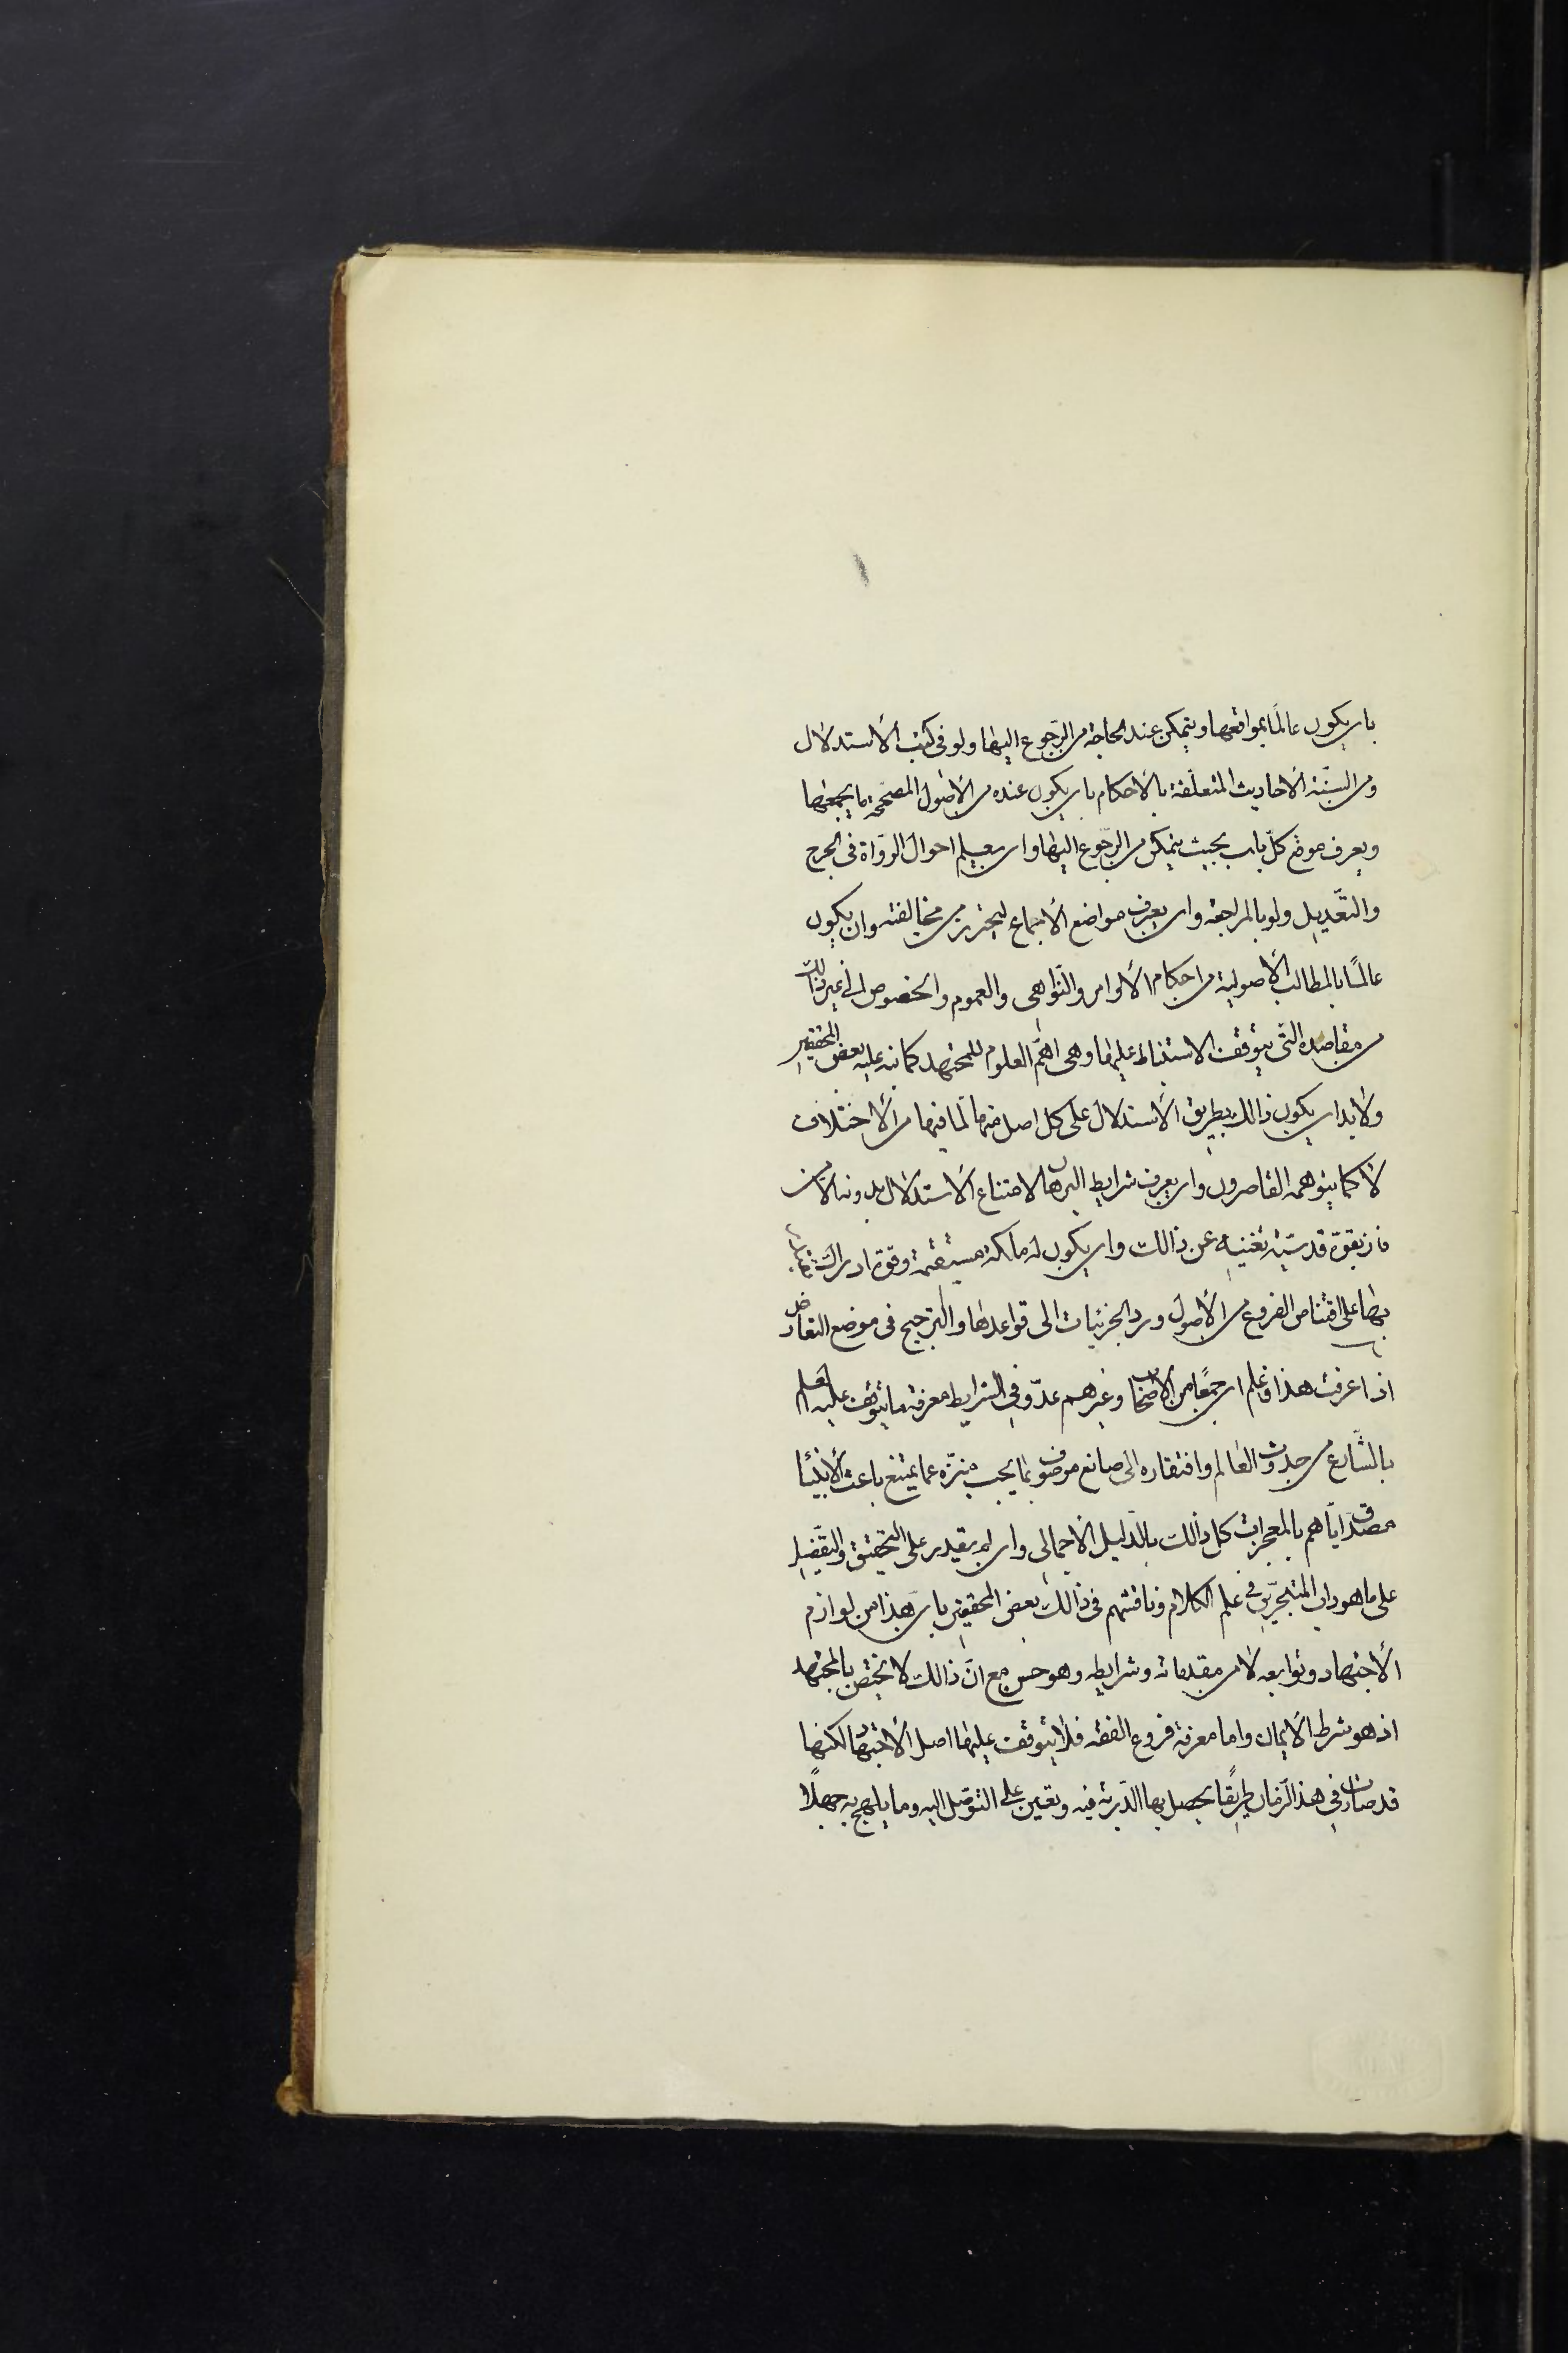 بان يكون عالمًا بمواقعها ويتمكن عند الحاجة من الرّجوع اليها ولو فى كتب الأستدلال
ومن السّنّة الاحاديث المتعلّقة بالأحكام بان يكون عنده من الأصول المصحّحة ما يجمعها
ويعرف موضع كلّ باب بحيث يتمكن من الرّجوع اليها وان يعلم احوال الروّاة فى الجرح
والتعّديل ولو بالمراجعة وان يعرف مواضع الأجماع ليحترز من مخالفته وان يكون
عالمًا بالمطالب الأصولية من احكام الأوامر والنّواهى والعموم والخصوص الى غير ذالك
من مقاصده التّى يتوقّف الاستنباط عليها وهى اهمّ العلوم للمجتهد كما نبه عليه بعض المحققين
ولابد ان يكون ذالك بطريق الأستدلال على كل اصل منها لما فيها من الأختلاف
لا كما يتوهمه القاصرون وان يعرف شرايط البرهان لامتناع الأستدلال بدونه الا من
فاز بقوّة قدسّية تغنيه عن ذالك وان يكون له ملكة مستقيمة وقوّة ادراك
بها على اقتناص الفروع من الأصول ورد الجزئيات الى قواعدها والترجيح فى موضع التعارض
اذا عرفت هذا فاعلم ان جمعًا من الأصحاب وغيرهم عدّو فى الشرايط معرفة ما يتوقف عليه العلم
بالشّارع من حدوث العالم وافتقاره الى صانع موصوف بما يجب منزّه عما يمتنع باعث الأنبيّا
مصدّق ايّاهم بالمعجزات كل ذالك بالدّليل الأجمالى وان لم يقدر على التحقيق والتفّصيل
على ما هو داب المتبحّرين فى علم الكلام وناقشهم فى ذالك بعض المحققين بان هذا من لوازم
الأجتهاد وتوابعه لا من مقدماته وشرايطه وهو حسن مع انّ ذالك لا يختص بالمجتهد
اذ هو شرط الأيمان واما معرفة فروع الفقه فلا يتوقف عليها اصل الأجتهاد لكنها
قد صارت فى هذا الزّمان طريقًا يحصل بها الدّربة فيه وتعين على التوصّل اليه وما يلهج به جهلًا